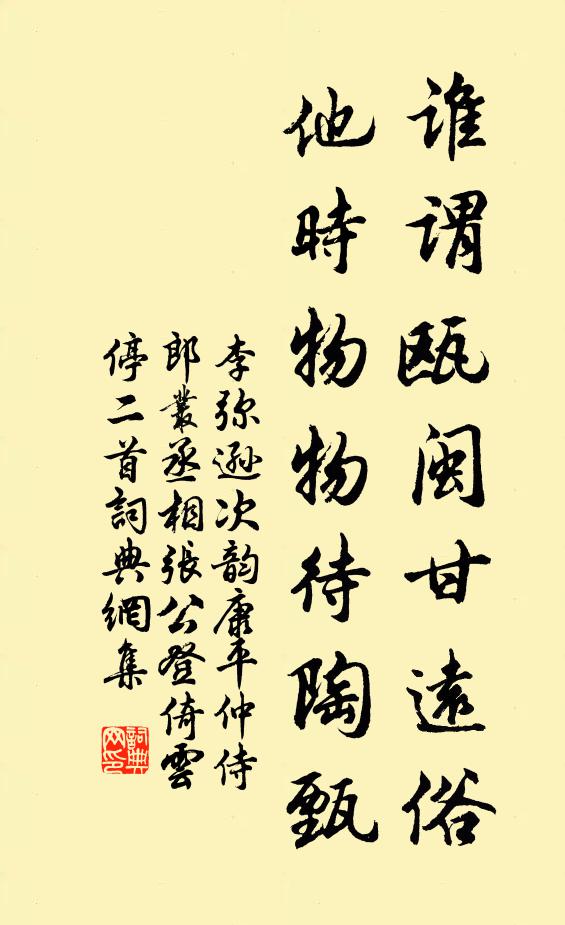 谁謂瓯闽甘遠俗
他時物物待陶甄
李弥遜次韵康平仲侍
郎叢丞相張公登倚雲
停二首詞典網集
詞典网印